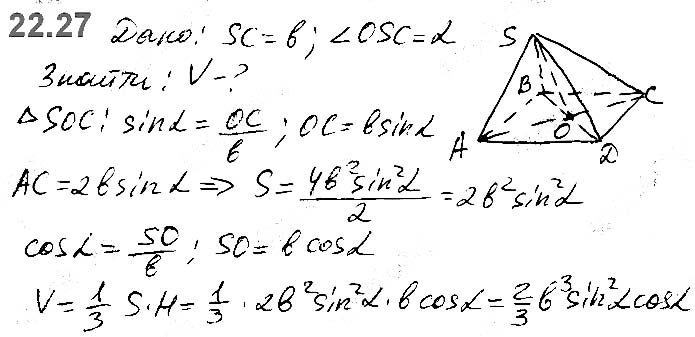 22.27 Дано: SC = b; ∠OSC = α
Знайти: V - ?
△SOC: sinα = OC/b; OC = b sinα
AC = 2b sinα => S = 4b²sin²α/2 = 2b²sin²α
cosα = SO/b; SO = b cosα
V = 1/3 S·H = 1/3 · 2b²sin²α · b cosα = 2/3 b³sin²α cosα
S
B
C
A
O
D